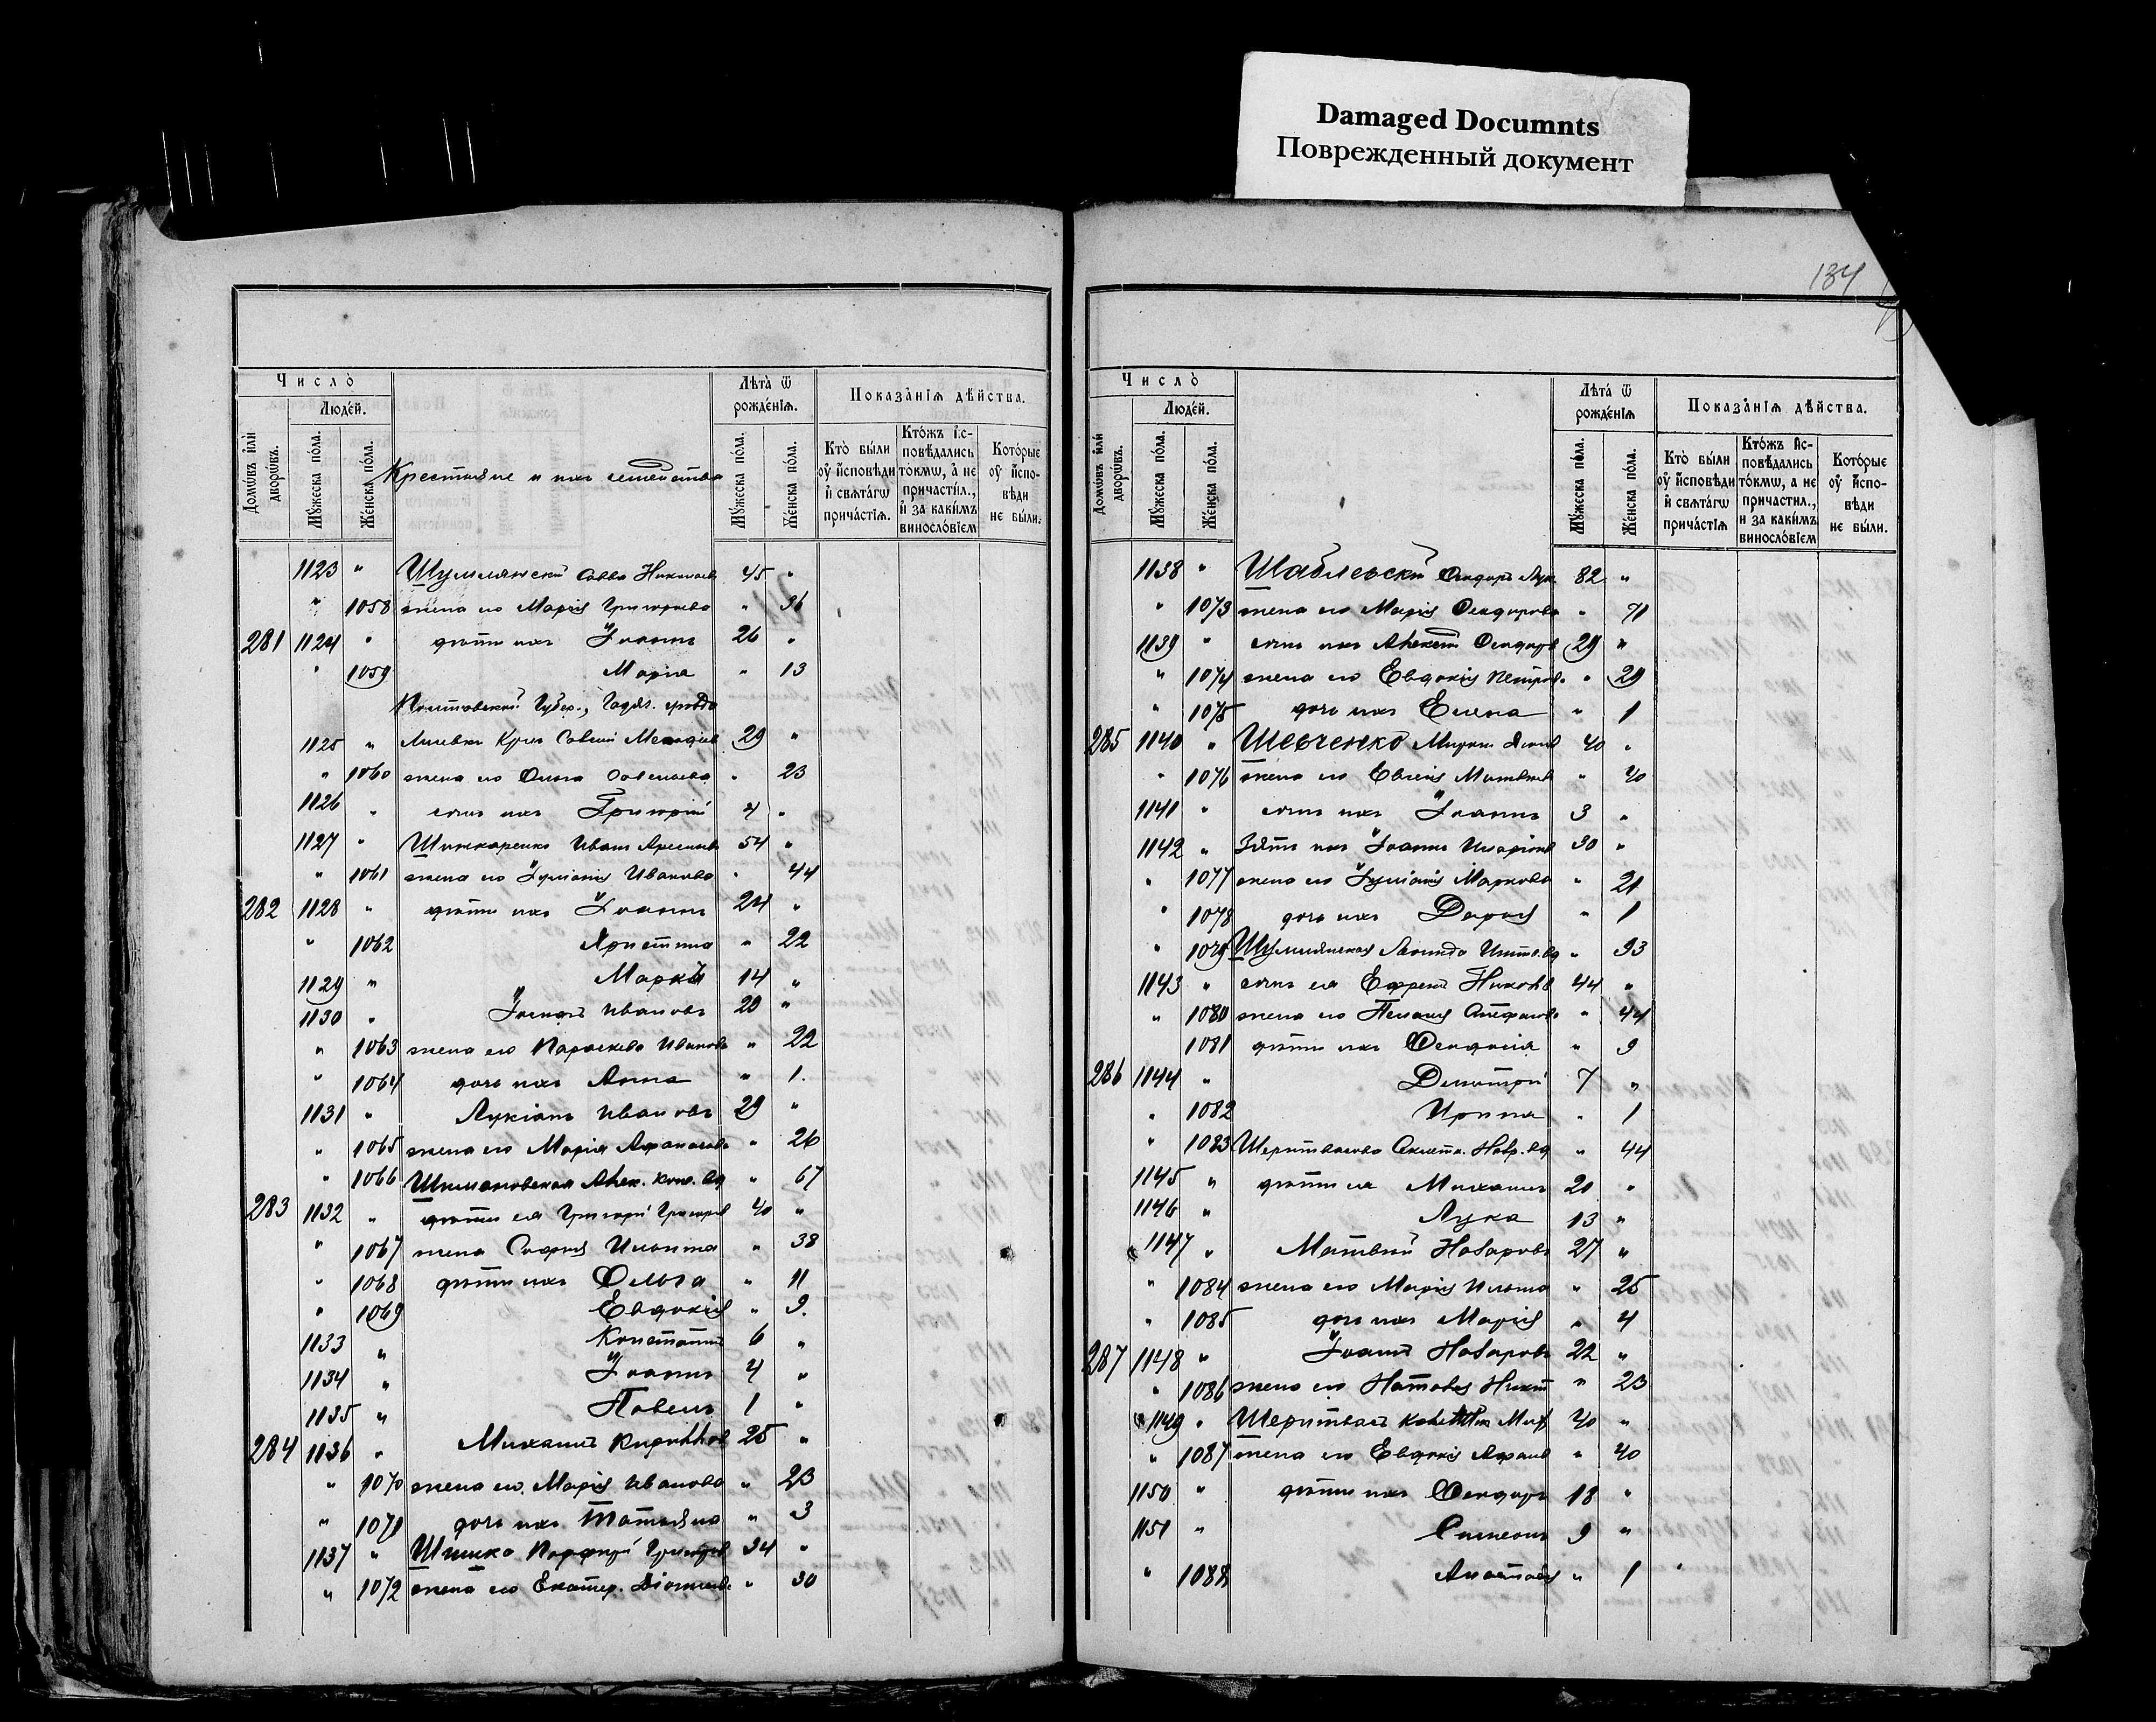 Damaged Documnts
Поврежденный документ
134
Число̀
Люде́й.
Домѡ́въ и҆лѝ дворѡ́въ.
Му́жеска по́ла.
Же́нска по́ла.
Крестьяне и ихъ семейства
Лѣта̀ ѿ рожде́нїѧ.
Му́жеска по́ла.
Же́нска по́ла.
Показа̑нїѧ дѣ́йства.
Кто̀ бы́ли ᲂу҆ и҆сповѣди и҆ свѧта́гѡ прича́стїѧ.
Кто́жъ и҆сповѣдались то́кмѡ, а҆ не причасти́л., и҆ за каки́мъ винослѡ́вїемъ
Кото́рые ᲂу҆ и҆сповѣди не бы́ли.
1123 " Шумлянскій Савва Николаевъ 45 "
" 1058 жена его Марія Григорьева " 36
281 1124 " дѣти ихъ Іоаннъ 26 "
" 1059 Марія " 13
Полтавской Губер., Гадяч. уѣзда
1125 " 29 "
" 1060 жена его Ольга Савельева " 23
1126 " сынъ ихъ Григорій 4 "
1127 " Шинкаренко Иванъ 54 "
" 1061 жена его Іуліанія Иванова " 44
282 1128 " дѣти ихъ Іоаннъ 24 "
" 1062 Христина " 22
1129 " Маркъ 14 "
1130 " Іосифъ Ивановъ 20 "
" 1063 жена его Параскева Иванова " 22
" 1064 дочь ихъ Анна " 1.
1131 " Лукіанъ Ивановъ 29 "
" 1065 жена его Марія Афанасьева " 26
" 1066 Шимановская Алек. Кон. вд " 67
283 1132 " дѣти ея Григорій Григорьев 40 "
" 1067 жена Софія " 38
" 1068 дѣти ихъ Ольга " 11
" 1069 Евдокія " 9.
1133 " Константинъ 6 "
1134 " Іоаннъ 4 "
1135 " Павелъ 1 "
284 1136 " Михаилъ Кириллов 25 "
" 1070 жена его Марія Иванова " 23
" 1071 дочь ихъ Татьяна " 3
1137 " Шишко Порфирій Григорьев 34 "
" 1072 жена его Екатер. Діонисьев. " 30
Число̀
Люде́й.
Домѡ́въ и҆лѝ дворѡ́въ.
Му́жеска по́ла.
Же́нска по́ла.
Лѣта́ ѿ рожде́нїѧ
Му́жеска по́ла.
Же́нска по́ла.
Показа̑нїѧ дѣ́йства.
Кто̀ бы́ли ᲂу҆ и҆сповѣди и҆ свѧта́гѡ прича́стїѧ
Кто́жъ и҆сповѣдались то́кмѡ, а не причастил., и за каки́мъ винослѡ́вїемъ
Кото́рые ᲂу҆ и҆сповѣди не бы́ли.
1138 " Шаблевскій Ѳеодоръ Лук. 82 "
" 1073 жена его Марія Ѳеодорова " 71
1139 " сынъ ихъ Алексѣй Ѳеодоръ 29 "
" 1074 жена его Евдокія Петров. " 29
" 1075 дочь ихъ Елена " 1
285 1140 " Шевченко Миронъ Яковл 40 "
" 1076 жена его Евгенія " 40
1141 " сынъ ихъ Іоаннъ 3 "
1142 " Зять ихъ Іоаннъ Иларіонв 30 "
" 1077 жена его Іуліанія Маркова " 21
" 1078 дочь ихъ Дарія " 1
" 1079 Шумлянская вд " 93
1143 " сынъ ея Ефремъ 44 "
" 1080 жена его Пелагія Стефанов. " 44
1081 дѣти ихъ Ѳеодосія " 9
286 1144 " Димитрій 7 "
" 1082 Ирина " 1
" 1083 Шеритвасова Наз. вд " 44
1145 " дѣти ея Михаилъ 20 "
1146 " Лука 13 "
1147 " Матвій Назаровъ 27 "
" 1084 жена его Марія " 25
" 1085 дочь ихъ Марія " 4
287 1148 " Іоаннъ Назаровъ 22 "
" 1086 жена его Наталія Никит " 23
1149 " Шеритвасъ 40 "
" 1087 жена его Евдокія Афанас " 40
1150 " дѣти ихъ Ѳеодоръ 18 "
1151 " Симеонъ 9 "
" 1088 Анастасія " 1